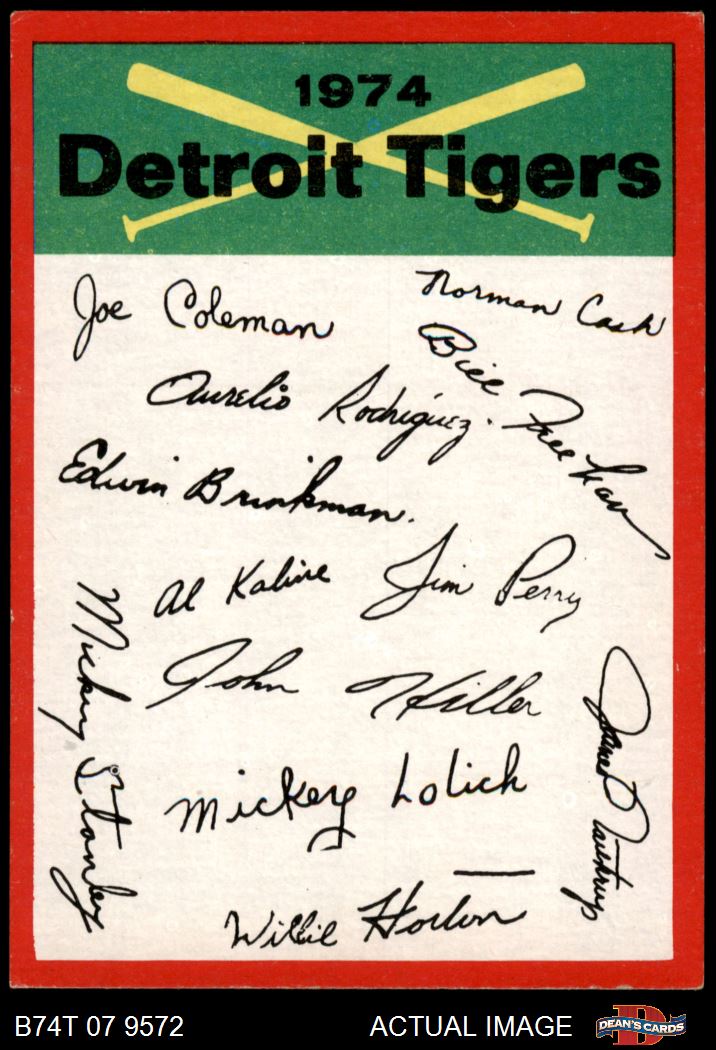 1974
Detroit Tigers
Joe Coleman
Norman Cash
Bill Freehan
Aurelio Rodriguez.
Edwin Brinkman.
Al Kaline
Jim Perry
Mickey Stanley
John Hiller
James Northrup
Mickey Lolich
Willie Horton
B74T 07 9572
ACTUAL IMAGE
D
DEAN'S CARDS